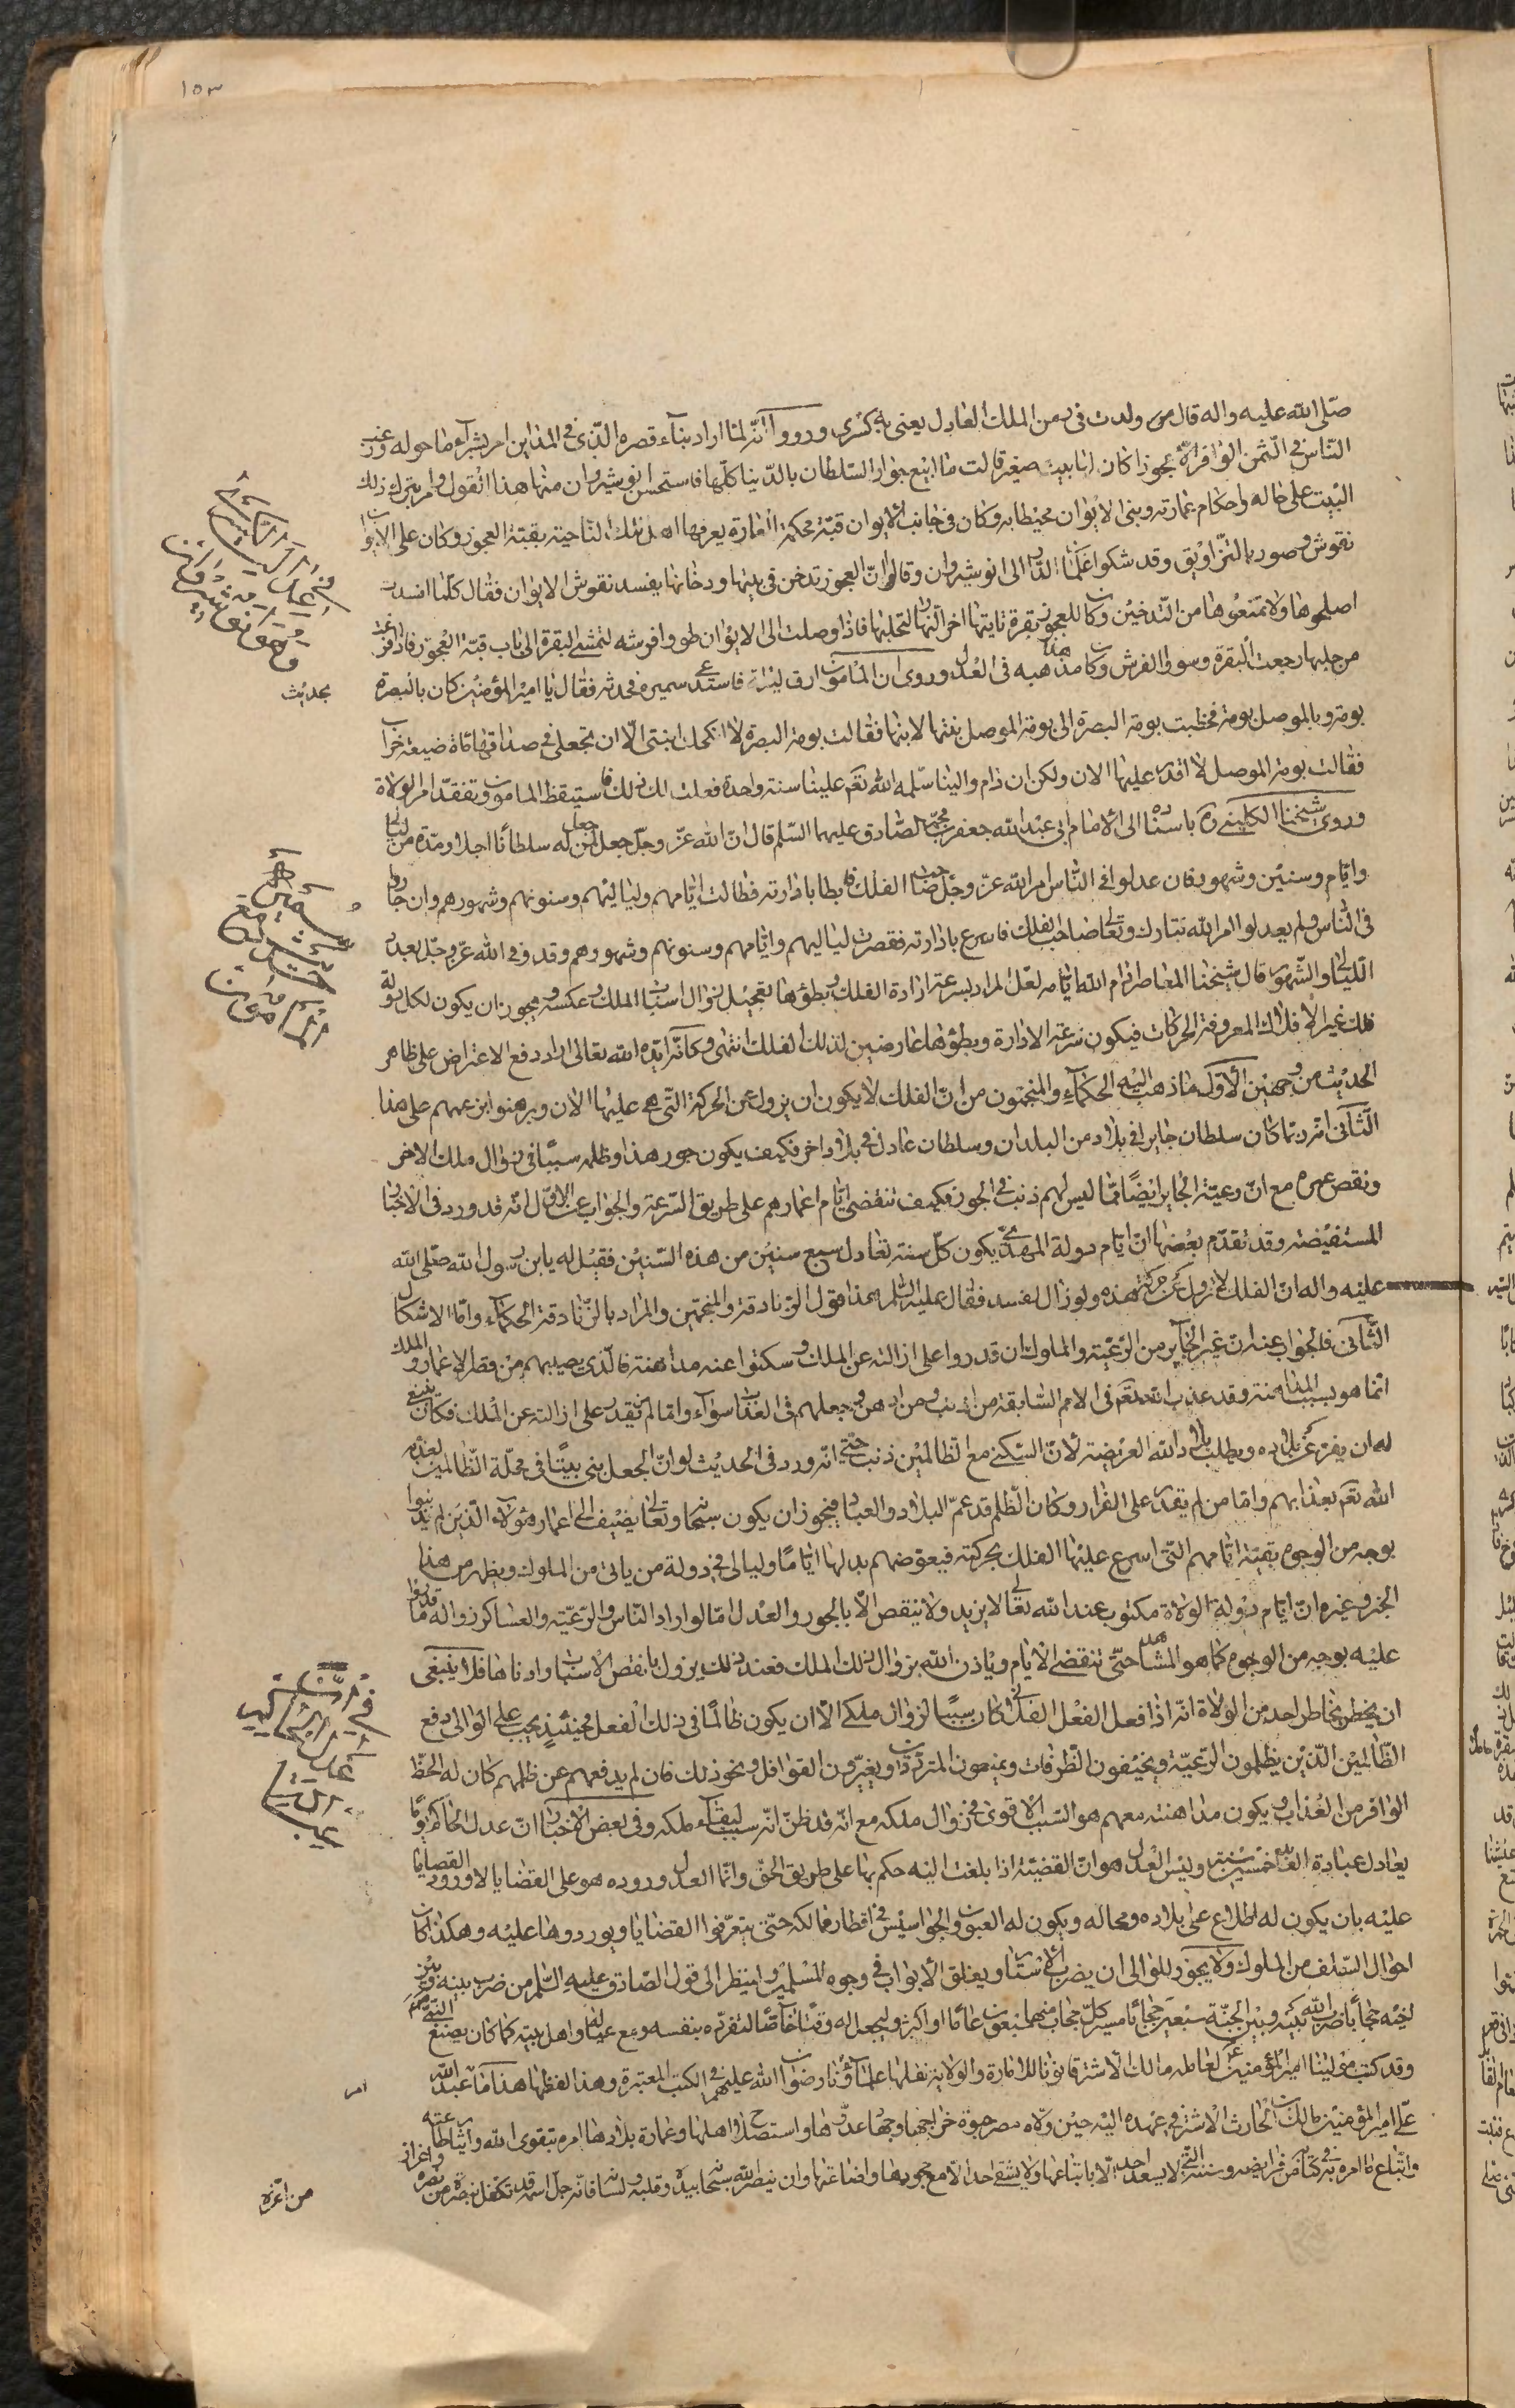 ١٥٣
صلّى الله عليه واله قال ولدت فى زمن الملك العادل يعنى به كسرى ورووا انّه لمّا اراد بناء قصره الّذى فى المداين امر بشراء ما حوله ورغب
النّاس فى الثّمن الوافر الّا عجوزا كان لها بيت صغير قالت ما ابيع جوار السّلطان بالدّنيا كلّها فاستحسن انوشيروان منها هذا القول وامر بترك ذلك
البيت على حاله واحكام عمارته وبنى الايوان محيطا به وكان فى جانب الايوان قبّة محكمة العمارة يعرفها اهل تلك النّاحية بقبّة العجوز وكان على الايوان
نقوش وصور بالتزاويق وقد شكوا غلمان الدّار الى انوشيروان وقالوا انّ العجوز تدخن فى بيتها ودخانها يفسد نقوش الايوان فقال كلّما افسدت
اصلحوها ولا تمنعوها من التّدخين وكان للعجوز بقرة تاتيها اخر النّهار لتحلبها فاذا وصلت الى الايوان طووا فرشه لتمشى البقرة الى باب قبّة العجوز فاذا فرغت
من حلبها رجعت البقرة وسووا الفرش وكان هذا مذهبه فى العدل وروى ان المأمون ارق ليلة فاستدعى سميره فحدثه فقال يا امير المؤمنين كان بالبصرة
بومة وبالموصل بومة فخطبت بومة البصرة الى بومة الموصل بنتها لابنها فقالت بومة البصرة لا انكحك ابنتى الّا ان تجعلى فى صداقها مأة ضيعة خراب
فقالت بومة الموصل لا اقدر عليها الان ولكن ان دام والينا سلّمه الله تعم علينا سنة واحدة فعلت لك ذلك فاستيقظ المامون وتفقد امر الولاة
وروى شيخنا الكلينى ره باسناده الى الامام ابى عبد الله جعفر بن محمّد الصّادق عليهما السّلم قال انّ الله عزّ وجلّ جعل لمن جعل له سلطانًا اجلا ومدّة من ليالى
وايّام وسنين وشهور فان عدلوا فى النّاس امر الله عزّ وجلّ صاحب الفلك فابطا بادارته فطالت ايّامهم ولياليهم وسنونهم وشهورهم وان جاروا
فى النّاس ولم يعدلوا امر الله تبارك وتعالى صاحب الفلك فاسرع بادارته فقصرت لياليهم وايّامهم وسنونهم وشهورهم وقد وفى الله عزّ وجلّ بعدد
اللّيالى والشّهور قال شيخنا المعاصر ادام الله ايّامه لعلّ المراد بسرعة ادارة الفلك وبطؤها تعجيل زوال اسباب الملك وعكسه ويجوز ان يكون لكل دولة
فلك غير الافلاك المعروفة الحركات فيكون سرعة الادارة وبطؤها عارضين لذلك الفلك انتهى وكانّه ايّده الله تعالى اراد دفع الاعتراض على ظاهر
الحديث من وجهين الاوّل ما ذهب اليه الحكماء والمنجّمون من انّ الفلك لا يكون ان يزول عن الحركة الّتى هى عليها الان وبرهنوا بزعمهم على هذا
الثّانى انّه ربّما كان سلطان جايرا فى بلاد من البلدان وسلطان عادل فى بلاد اخر فكيف يكون جور هذا وظلمه سببًا فى زوال ملك الاخر
ونقص عمره مع انّ رعيّة الجاير ايضًا ممّا ليس لهم ذنب فى الجور فكيف تنقضى ايّام اعمارهم على طريق السّرعة والجواب عن الاوّل انّه قد ورد فى الاخبار
المستفيضة وقد تقدّم بعضها انّ ايّام دولة المهدى يكون كلّ سنة تعادل سبع سنين من هذه السّنين فقيل له يابن رسول الله صلّى الله
عليه واله انّ الفلك لا يزول عن حركته هذه ولو زال لفسد فقال عليه السّلم هذا قول الزّنادقة والمنجّمين والمراد بالزّنادقة الحكماء وامّا الاشكال
الثّانى فالجواب عنه ان غير الجاير من الرّعيّة والملوك ان قدروا على ازالته عن الملك وسكتوا عنه مداهنة فالّذى يصيبهم من قصر الاعمار والملك
انّما هو بسبب المداهنة وقد عذب الله تعم فى الامم السّابقة من اذنب ومن داهن وجعلهم فى العذاب سواء وامّا من لم يقدر على ازالته عن الملك فكان ينبغى
له ان يفرّ عن بلاده ويطلب بلاد الله العريضة لانّ السّكنى مع الظّالمين ذنب حتّى انّه ورد فى الحديث لو انّ الجعل بنى بيتًا فى محلّة الظّالمين لعذّبه
الله تعم بعذابهم وامّا من لم يقدر على الفرار وكان الظّلم قد عمّ البلاد والعباد فيجوز ان يكون سبحانه وتعالى يضيف الى اعمار هؤلاء الّذين لم يذنبوا
بوجه من الوجوه بقيّة ايّامهم الّتى اسرع عليها الفلك بحركته فيعوّضهم بدلها ايّامًا وليالى فى دولة من ياتى من الملوك ويظهر من هذا
الخبر وغيره انّ ايّام دولة الولاة مكتوب عند الله تعالى لا يزيد ولا ينقص الّا بالجور والعدل امّا لو اراد النّاس والرّعيّة والعساكر زواله ما قدروا
عليه بوجه من الوجوه كما هو المشاهد حتّى تنقضى الايّام وياذن الله بزوال ذلك الملك فعند ذلك يزول بانقص الاسباب وادناها فلا ينبغى
ان يخطر بخاطر احد من الولاة انّه اذا فعل الفعل الفلانى كان سببًا لزوال ملكى الّا ان يكون ظالمًا فى ذلك الفعل فحينئذٍ يجب على الوالى دفع
الظّالمين الّذين يظلمون الرّعيّة ويخيفون الطّرقات ويمنعون المتردّدين ويغيرون القوافل ونحو ذلك فان لم يدفعهم عن ظلمهم كان له الحظّ
الوافر من العذاب ويكون مداهنته معهم هو السّبب الاقوى فى زوال ملكه مع انّه قد ظنّ انّه سبب لبقاء ملكه وفى بعض الاخبار انّ عدل الحاكم يومًا
يعادل عبادة العابد خمسين سنة وليس العدل هو انّ القضيّة اذا بلغت اليه حكم بها على طريق الحقّ وانّما العدل وروده هو على القضايا لا ورود القضايا
عليه بان يكون له اطّلاع على بلاده ومحاله ويكون له العيون والجواسيس فى اقطار ممالكه حتّى يتعرّفوا القضايا ويوردوها عليه وهكذا كان
احوال السّلف من الملوك ولا يجوز للوالى ان يضرب الاستار ويغلق الابواب فى وجوه المسلمين وانتظر الى قول الصّادق عليه السّلم من ضرب بينه وبين
اخيه حجابًا ضرب الله بينه وبين الجنّة سبعين حجابًا مسير كلّ حجاب منهما سبعون عامًا او اكثر وليجعل له وقتًا خاصًّا لتفرّده بنفسه ومع عياله واهل بيته كما كان يصنع النّبى
وقد كتب مولينا امير المؤمنين لعامله مالك الاشتر قانونا للامارة والولاية نقلها علماؤنا رضوان الله عليهم فى الكتب المعتبرة وهذا لفظها هذا ما امر عبد الله
على امير المؤمنين مالك بن الحارث الاشتر فى عهده اليه حين ولّاه مصر جبوة خراجها وجهاد عدوّها واستصلاح اهلها وعمارة بلادها امره بتقوى الله وايثار طاعته
واتّباع ما امره به فى كتابه من فرايضه وسننه الّتى لا يسعد احد الّا باتّباعها ولا يشقى احد الّا مع جحودها واضاعتها وان ينصر الله سبحانه بيده وقلبه ولسانه فانّه جلّ اسمه قد تكفّل بنصرة من نصره واعزاز
بحديث
امر
من اعزّه